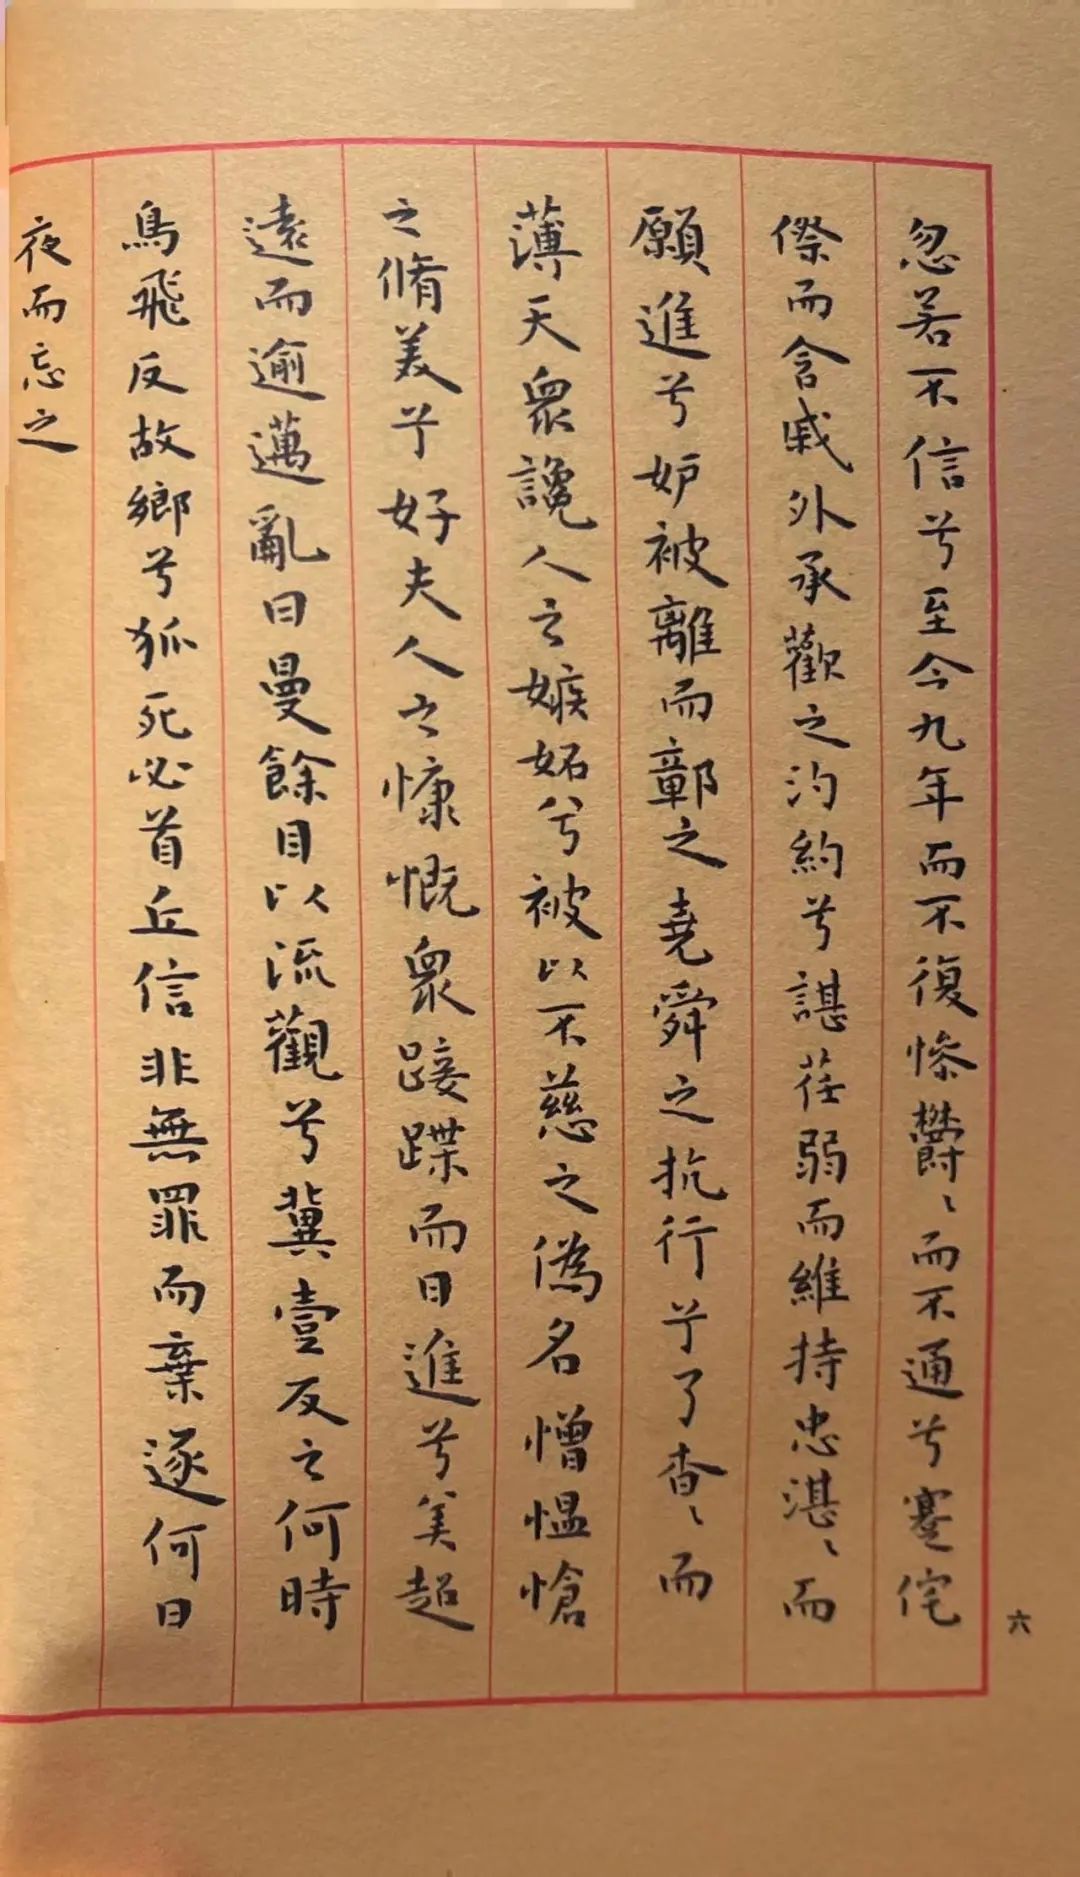 忽若不信兮至今九年而不復慘欝〻而不通兮蹇侘
傺而含戚外承歡之汋約兮諶荏弱而維持忠湛〻而
願進兮妒被離而鄣之堯舜之抗行兮了杳〻而
薄天眾讒人之嫉妬兮被以不慈之偽名憎愠愴
之脩美兮好夫人之慷慨眾踥蹀而日進兮美超
遠而逾邁亂曰曼餘目以流觀兮冀壹反之何時
鳥飛反故鄉兮狐死必首丘信非無罪而棄逐何日
夜而忘之
六